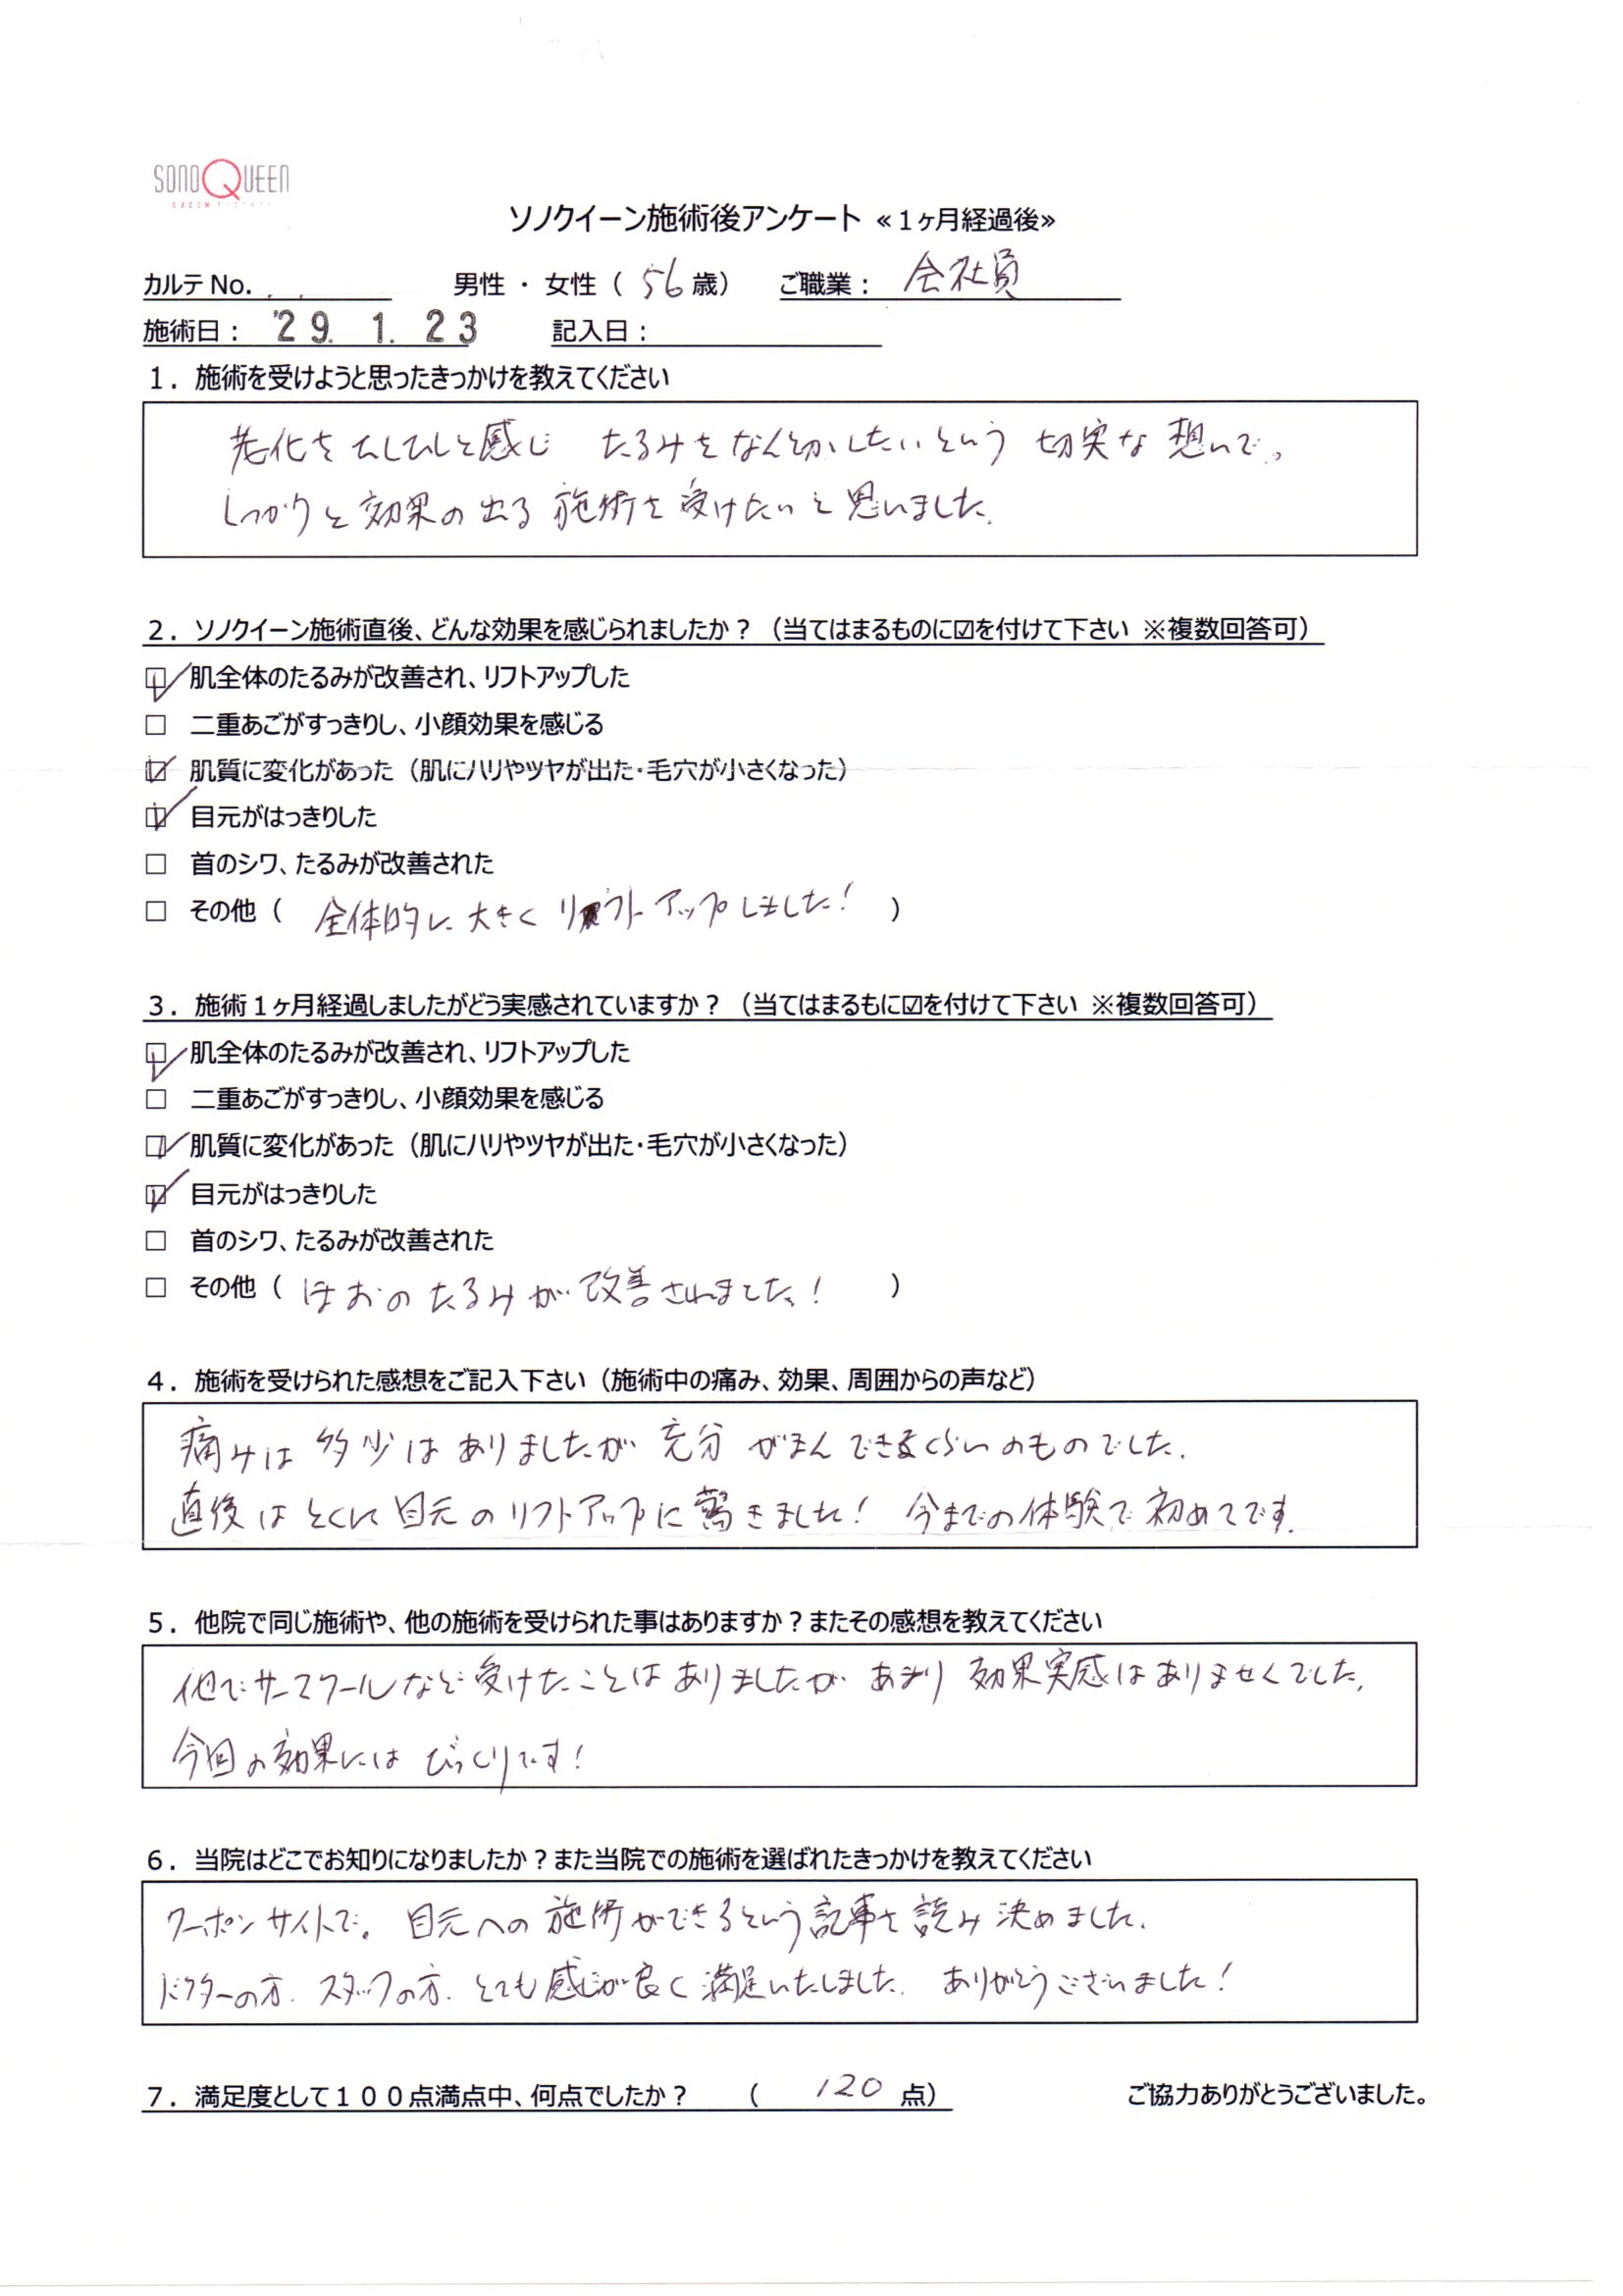 SONOQUEEN
ソノクイーン施術後アンケート ≪１ヶ月経過後≫
カルテ No. 男性 ・ 女性 （ 56 歳） ご職業： 会社員
施術日： '29. 1. 23 記入日：
１．施術を受けようと思ったきっかけを教えてください
老化をひしひしと感じ たるみをなんとかしたいという 切実な想いで。
しっかりと効果の出る施術を受けたいと思いました.
２．ソノクイーン施術直後、どんな効果を感じられましたか？（当てはまるものに☑を付けて下さい ※複数回答可）
☑ 肌全体のたるみが改善され、リフトアップした
□ 二重あごがすっきりし、小顔効果を感じる
☑ 肌質に変化があった（肌にハリやツヤが出た・毛穴が小さくなった）
☑ 目元がはっきりした
□ 首のシワ、たるみが改善された
□ その他（ 全体的に大きく リフトアップしました！ ）
３．施術１ヶ月経過しましたがどう実感されていますか？（当てはまるもに☑を付けて下さい ※複数回答可）
☑ 肌全体のたるみが改善され、リフトアップした
□ 二重あごがすっきりし、小顔効果を感じる
☑ 肌質に変化があった（肌にハリやツヤが出た・毛穴が小さくなった）
☑ 目元がはっきりした
□ 首のシワ、たるみが改善された
□ その他（ ほおのたるみが改善されました！ ）
４．施術を受けられた感想をご記入下さい（施術中の痛み、効果、周囲からの声など）
痛みは多少はありましたが 充分 がまんできるくらいのものでした.
直後はとくに目元のリフトアップに驚きました！ 今までの体験で初めてです.
５．他院で同じ施術や、他の施術を受けられた事はありますか？またその感想を教えてください
他でサーマクールなど受けたことはありましたが あまり 効果実感はありませんでした.
今回の効果には びっくりです！
６．当院はどこでお知りになりましたか？また当院での施術を選ばれたきっかけを教えてください
クーポンサイトで。目元への施術ができるという記事を読み決めました.
ドクターの方. スタッフの方. とても感じが良く満足いたしました. ありがとうございました！
７．満足度として１００点満点中、何点でしたか？ （ 120 点） ご協力ありがとうございました。